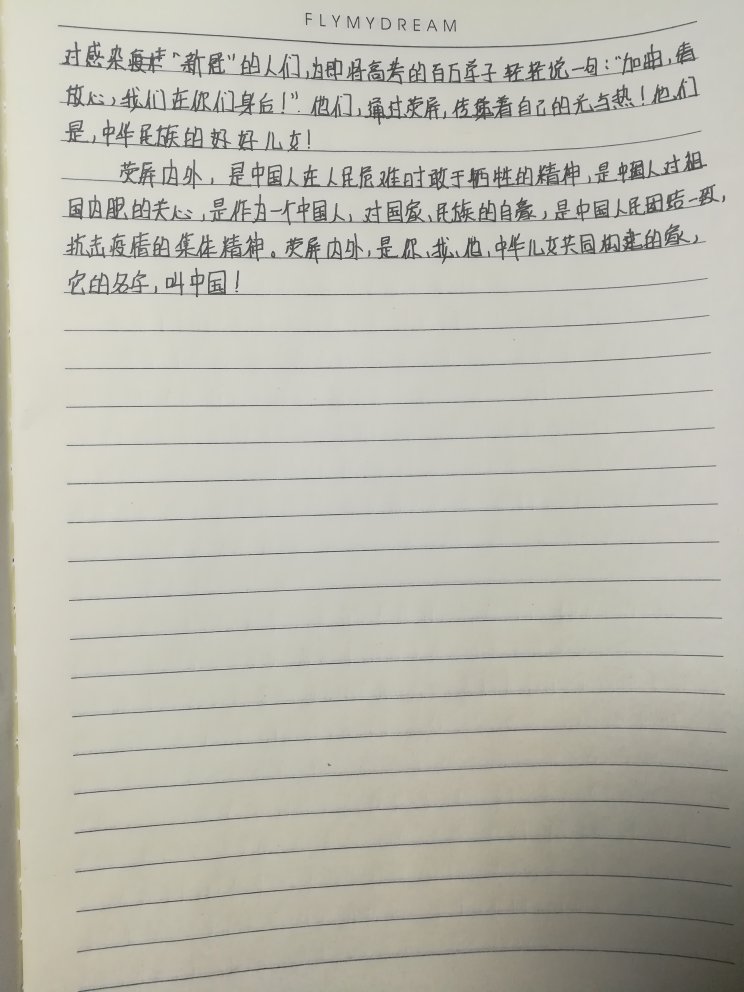 FLYMYDREAM
对感染疫情“新冠”的人们,为即将高考的百万学子轻轻说一句:“加油,请
放心,我们在你们身后!”他们,通过荧屏,传递着自己的光与热!他们
是,中华民族的好好儿女!
荧屏内外,是中国人在人民危难时敢于牺牲的精神,是中国人对祖
国内胞的关心,是作为一个中国人,对国家、民族的自豪,是中国人民团结一致,
抗击疫情的集体精神。荧屏内外,是你、我、他,中华儿女共同构建的家,
它的名字,叫中国!